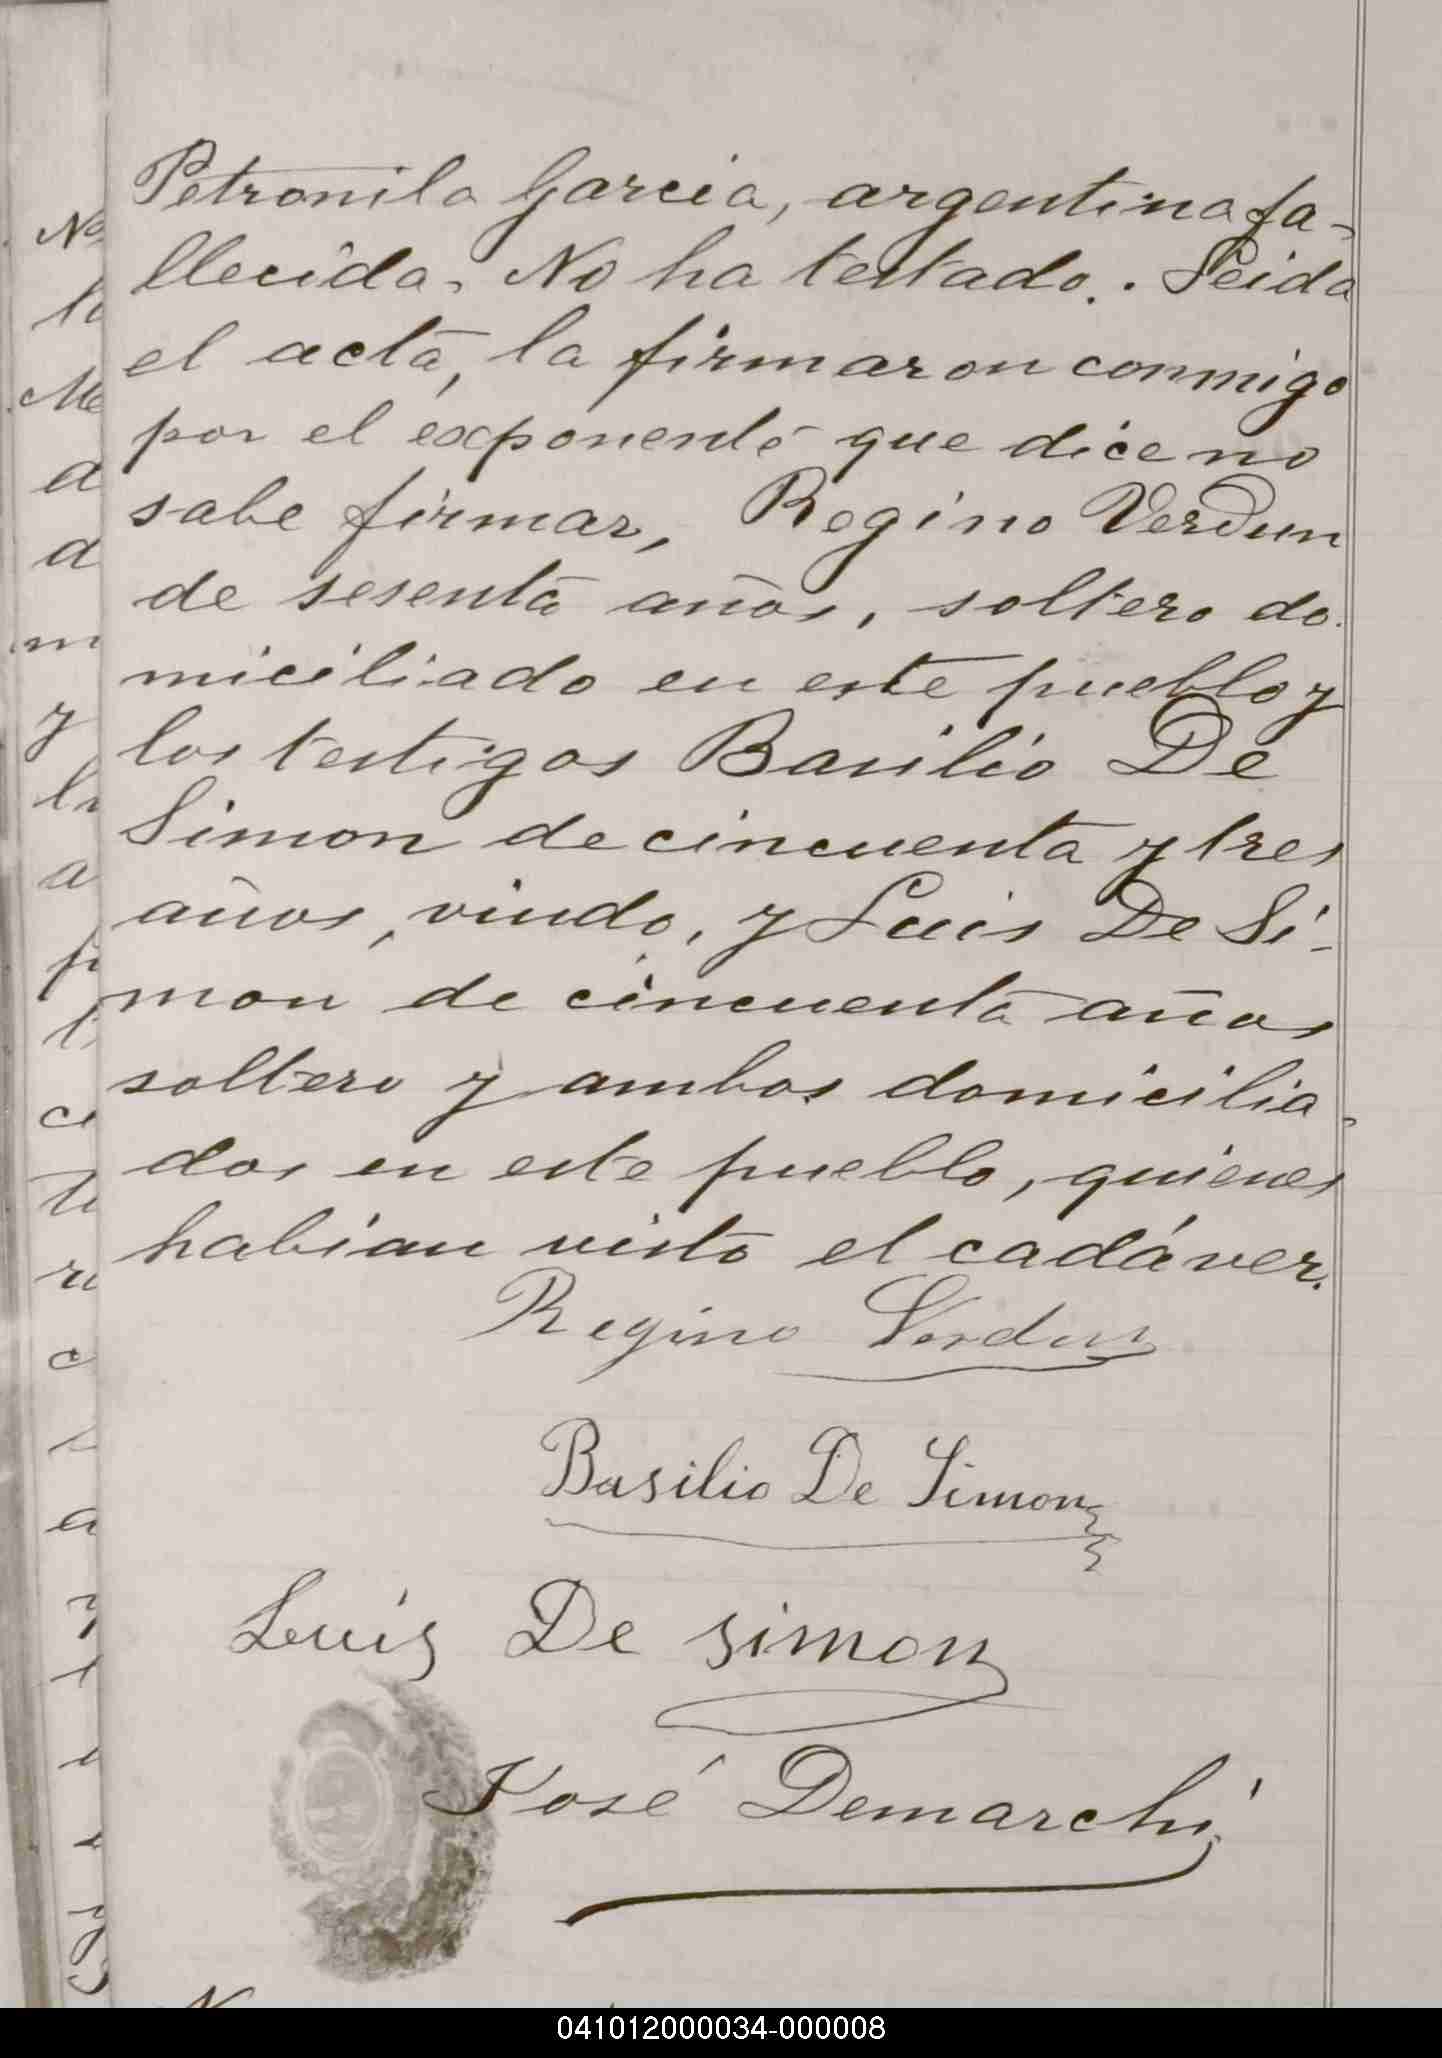 Petronila Garcia, argentina fa-
llecida. No ha testado. Leida
el acta, la firmaron conmigo
por el exponente que dice no
sabe firmar, Regino Verdun
de sesenta años, soltero do-
miciliado en este pueblo y
los testigos Basilio De
Simon de cincuenta y tres
años, viudo, y Luis De Si-
mon de cincuenta años
soltero y ambos domicilia-
dos en este pueblo, quienes
habian visto el cadáver.
Regino Verdun
Basilio De Simon
Luis De simon
José Demarchi
041012000034-000008